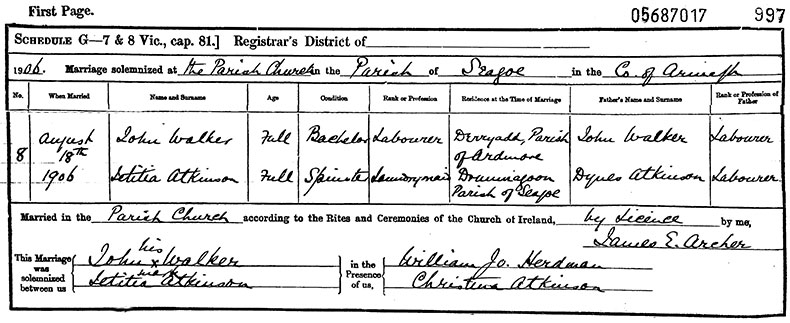 First Page. 05687017 997
SCHEDULE G—7 & 8 Vic., cap. 81.] Registrar's District of
1906. Marriage solemnized at the Parish Church in the Parish of Seagoe in the Co. of Armagh
No. When Married Name and Surname Age Condition Rank or Profession Residence at the Time of Marriage Father's Name and Surname Rank or Profession of Father
8 August 18th 1906 John Walker Full Bachelor Labourer Derryadd, Parish of Ardmore John Walker Labourer
Letitia Atkinson Full Spinster Drumnagoon Parish of Seagoe Dynes Atkinson Labourer
Married in the Parish Church according to the Rites and Ceremonies of the Church of Ireland, by Licence by me,
James E. Archer
This Marriage was solemnized between us John his x mark Walker in the Presence of us, William Jo. Herdman
Letitia Atkinson Christina Atkinson